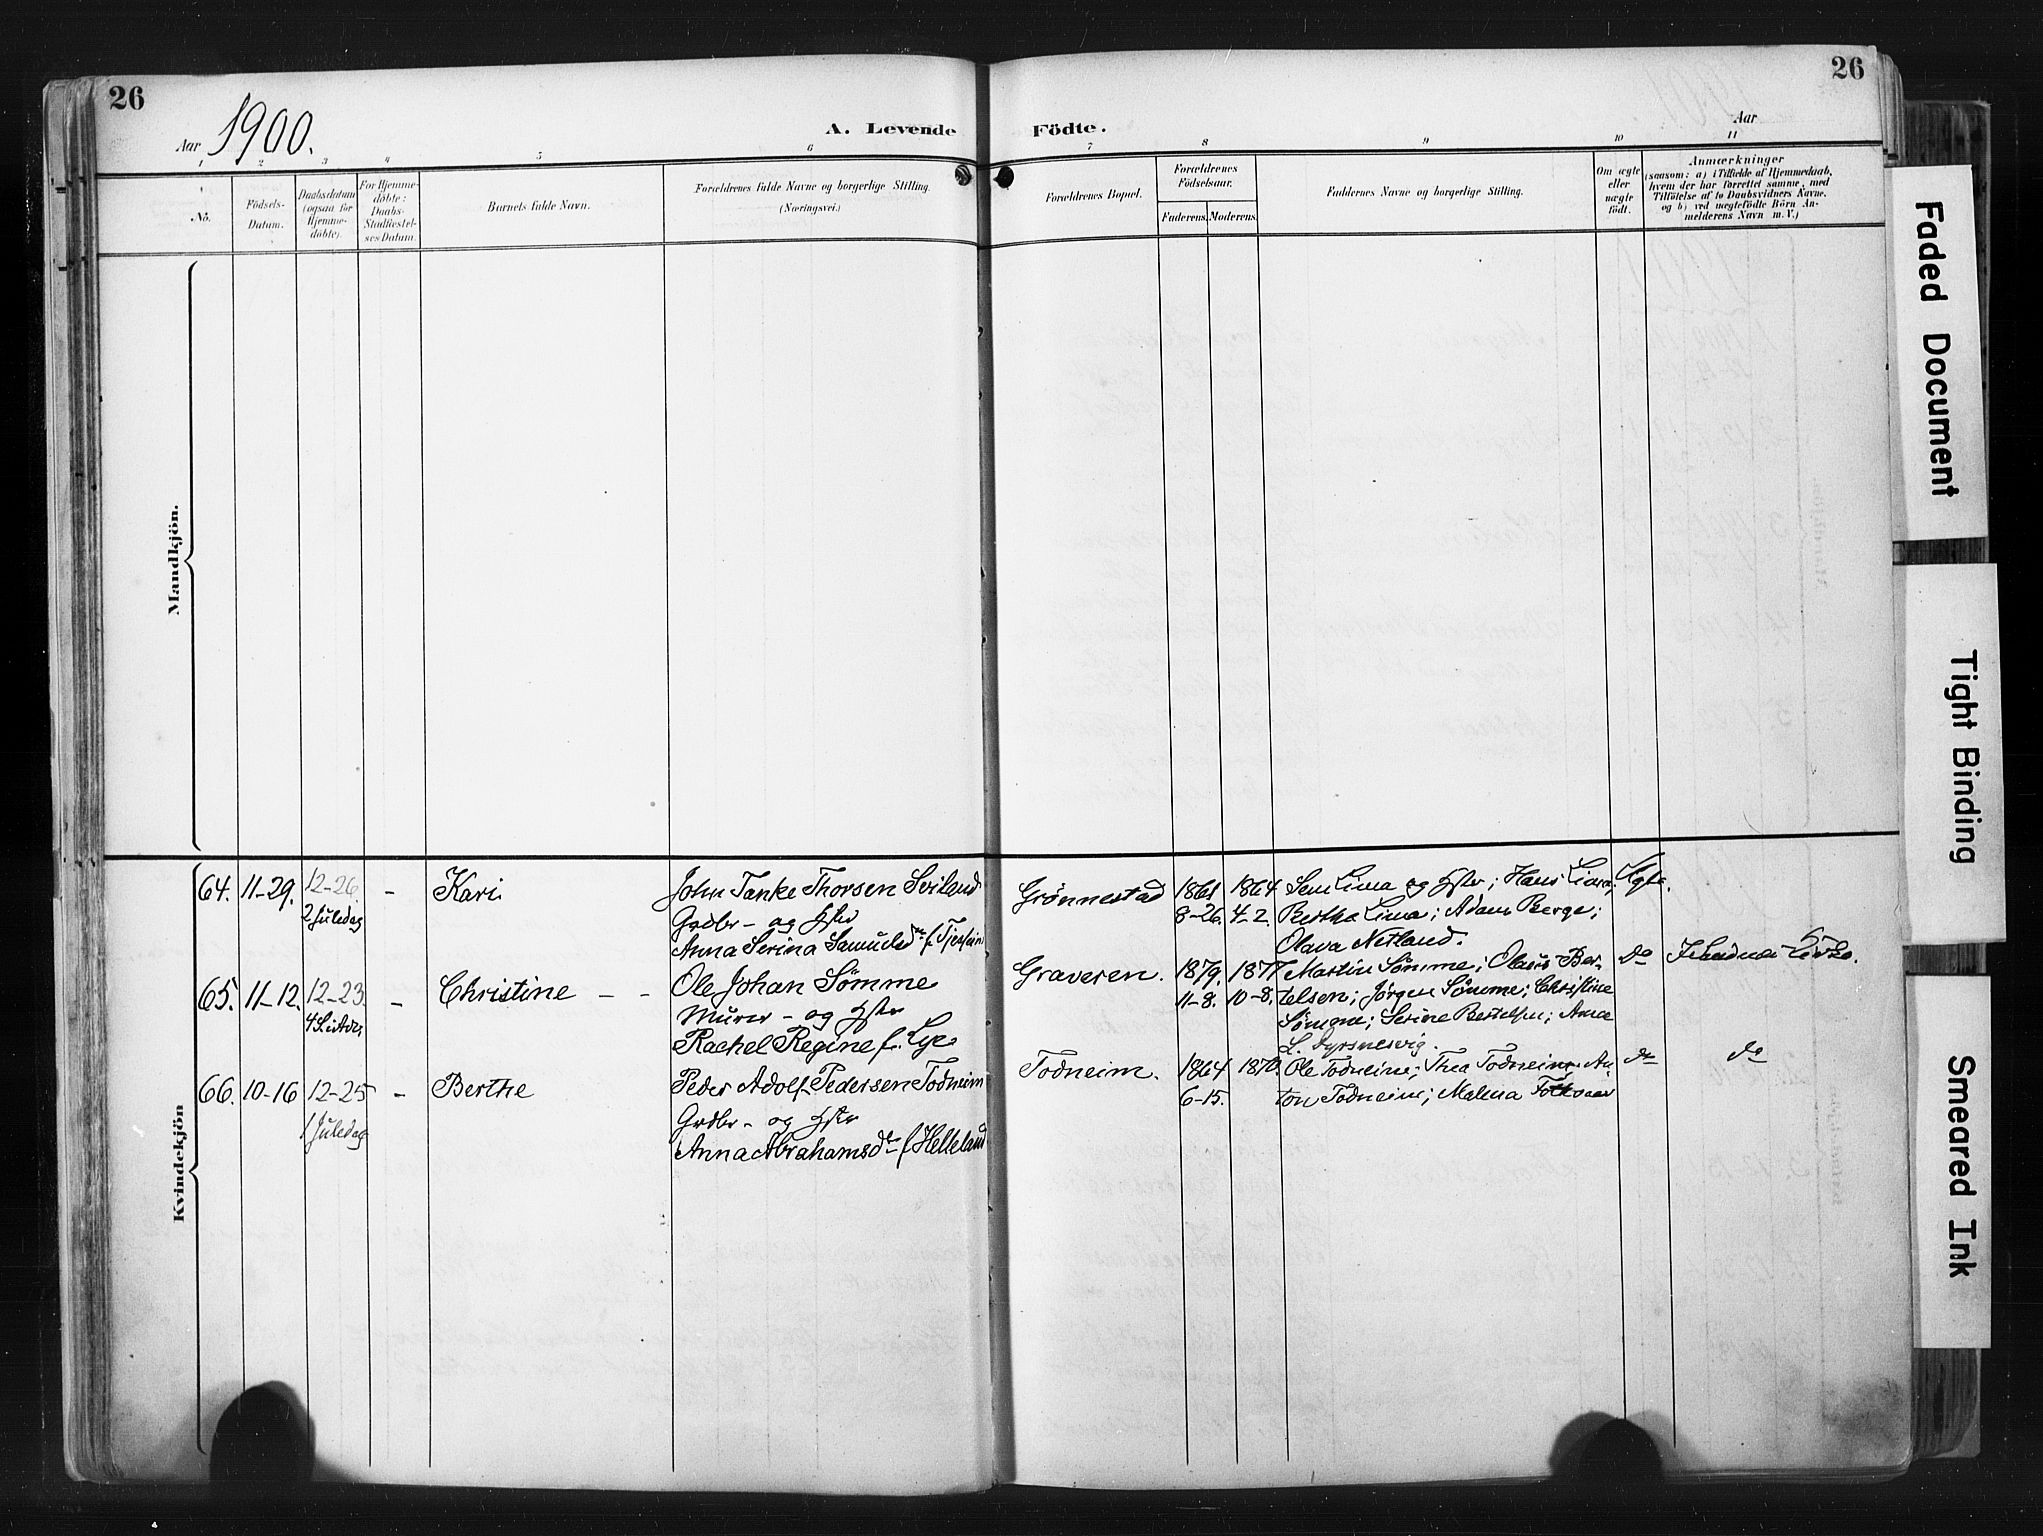 26
26
Aar 1900.
A. Levende
Födte.
Aar
1 2 3 4 5 6 7 8 9 10 11
No.
Födsels-
Datum.
Daabsdatum
(ogsaa for
Hjemme-
döbte).
For Hjemme-
döbte:
Daabs-
Stadfæstel-
ses Datum.
Barnets fulde Navn.
Forældrenes fulde Navne og borgerlige Stilling.
(Næringsvei.)
Forældrenes Bopæl.
Forældrenes
Födselsaar.
Faderens.
Moderens.
Faddernes Navne og borgerlige Stilling.
Om ægte
eller
uægte
födt.
Anmærkninger
(saasom: a) i Tilfælde af Hjemmedaab,
hvem der har forrettet samme, med
Tilföielse af to Daabsvidners Navne,
og b) ved uægtefödte Börn An-
melderens Navn m. V.)
Mandkjön.
Kvindekjön
64. 11-29. 12-26 - Kari
2 Juledag
John Tanke Thorsen Sviland
Grdbr - og Hstr
Anna Serina Samuelsdtr f. Tjessem
Grönnestad
1861 8-26.
1864 4-2.
Sem Lima og Hstr; Hans Lima;
Bertha Lima; Adam Berge;
Olava Netland.
Ægte.
65. 11-12. 12-23. - Christine - -
4 S. i Adv.
Ole Johan Sömme
Murer - og Hstr
Rachel Regine f. Lye
Graveren.
1879. 11-8.
1877 10-8.
Martin Sömme; Olaus Ber-
telsen; Jörgen Sömme; Christine
Sömme; Serine Bertelsen; Anna
L. Dyrsnesvig.
do
66. 10-16 12-25 - Berthe
1 Juledag
Peder Adolf Pedersen Todneim
Grdbr - og Hstr
Anna Abrahamsdtr f. Helleland
Todneim.
1864 6-15.
1870.
Ole Todneim; Thea Todneim; An-
ton Todneim; Malena
do
do
Faded Document
Tight Binding
Smeared Ink